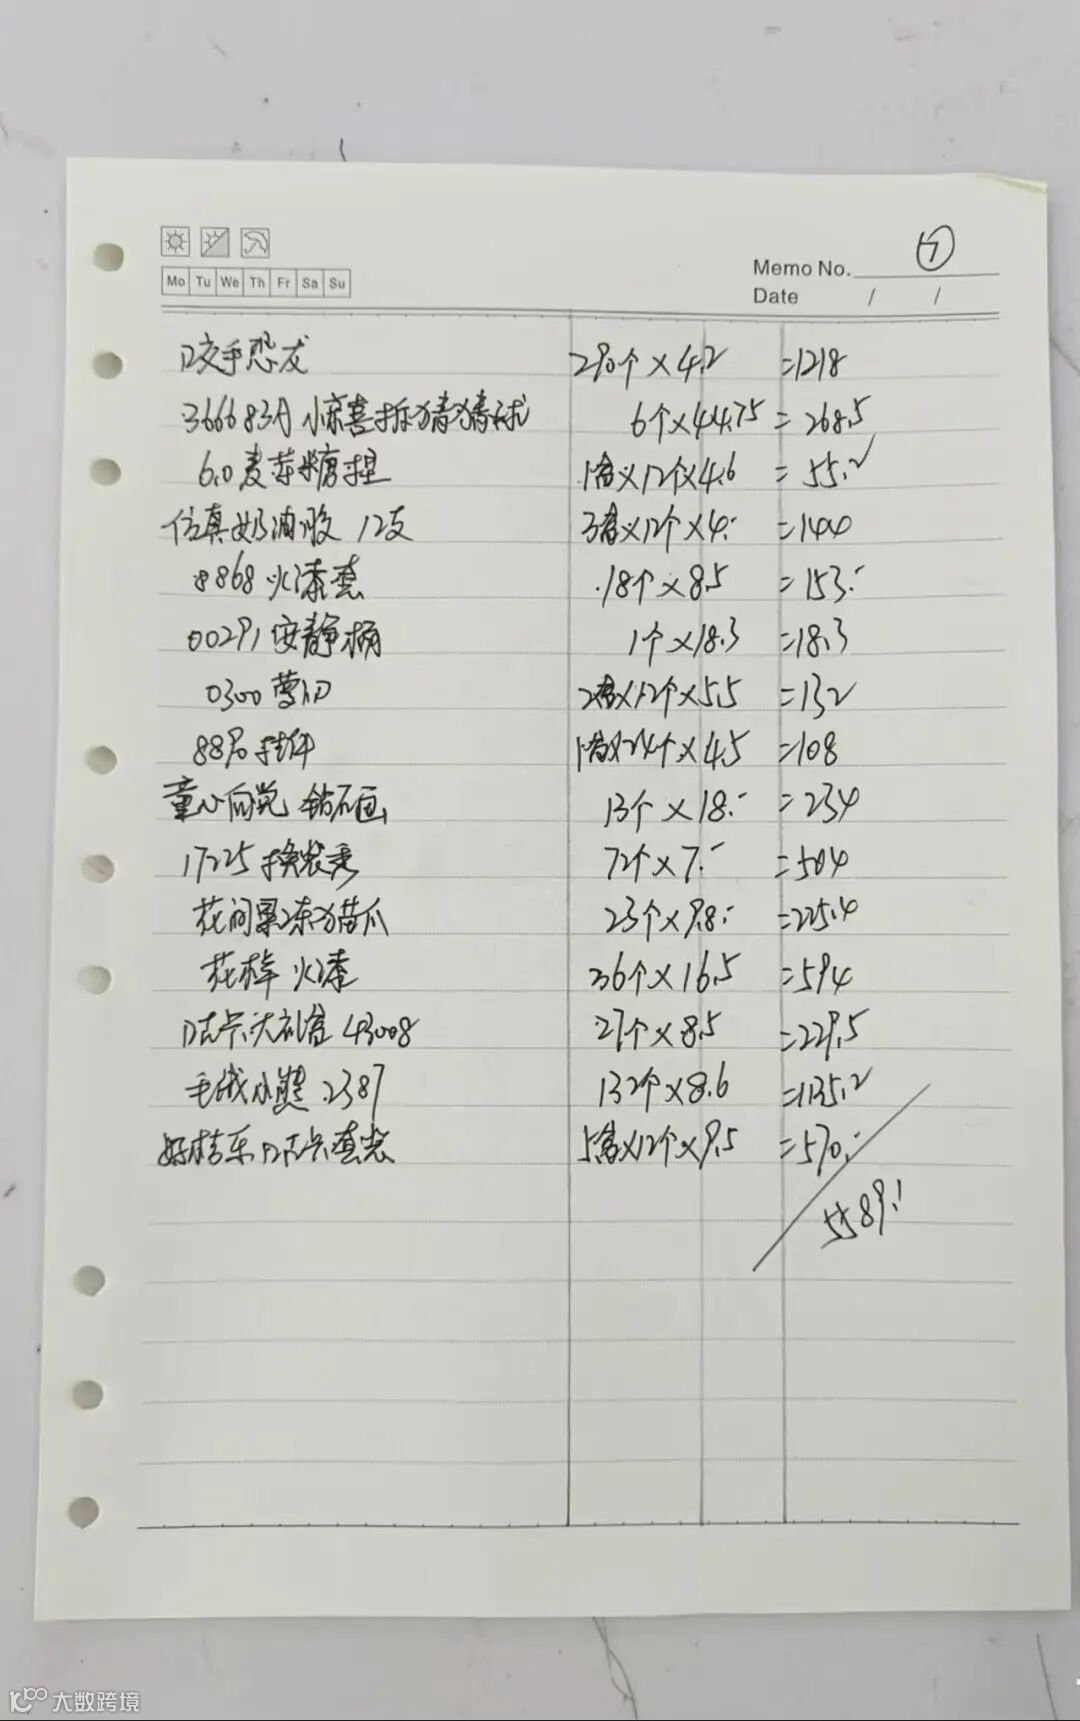 ⑦
Memo No.
Mo Tu We Th Fr Sa Su
Date / /
咬手恐龙 290个×4.2 =1218
366683A 惊喜拆猜猜球 6个×44.75 =268.5
6.0麦芽糖捏 1盒×12个×4.6 =55.2
仿真奶油胶 12支 3盒×12个×4.- =144
8868 火漆套 18个×8.5 =153.-
00291 安静桶 1个×18.3 =18.3
0300 2盒×12个×5.5 =132
挂件 1盒×24个×4.5 =108
童心向党 钻石画 13个×18.- =234
17225 换装秀 72个×7.- =504
花间果冻猫爪 23个×9.8.- =225.4
火漆 36个×16.5 =594
咕卡大礼盒 43008 27个×8.5 =229.5
毛绒小熊 2387 132个×8.6 =1135.2
好桔乐咕卡套装 5盒×12个×9.5 =570.-
5589.1
大数跨境